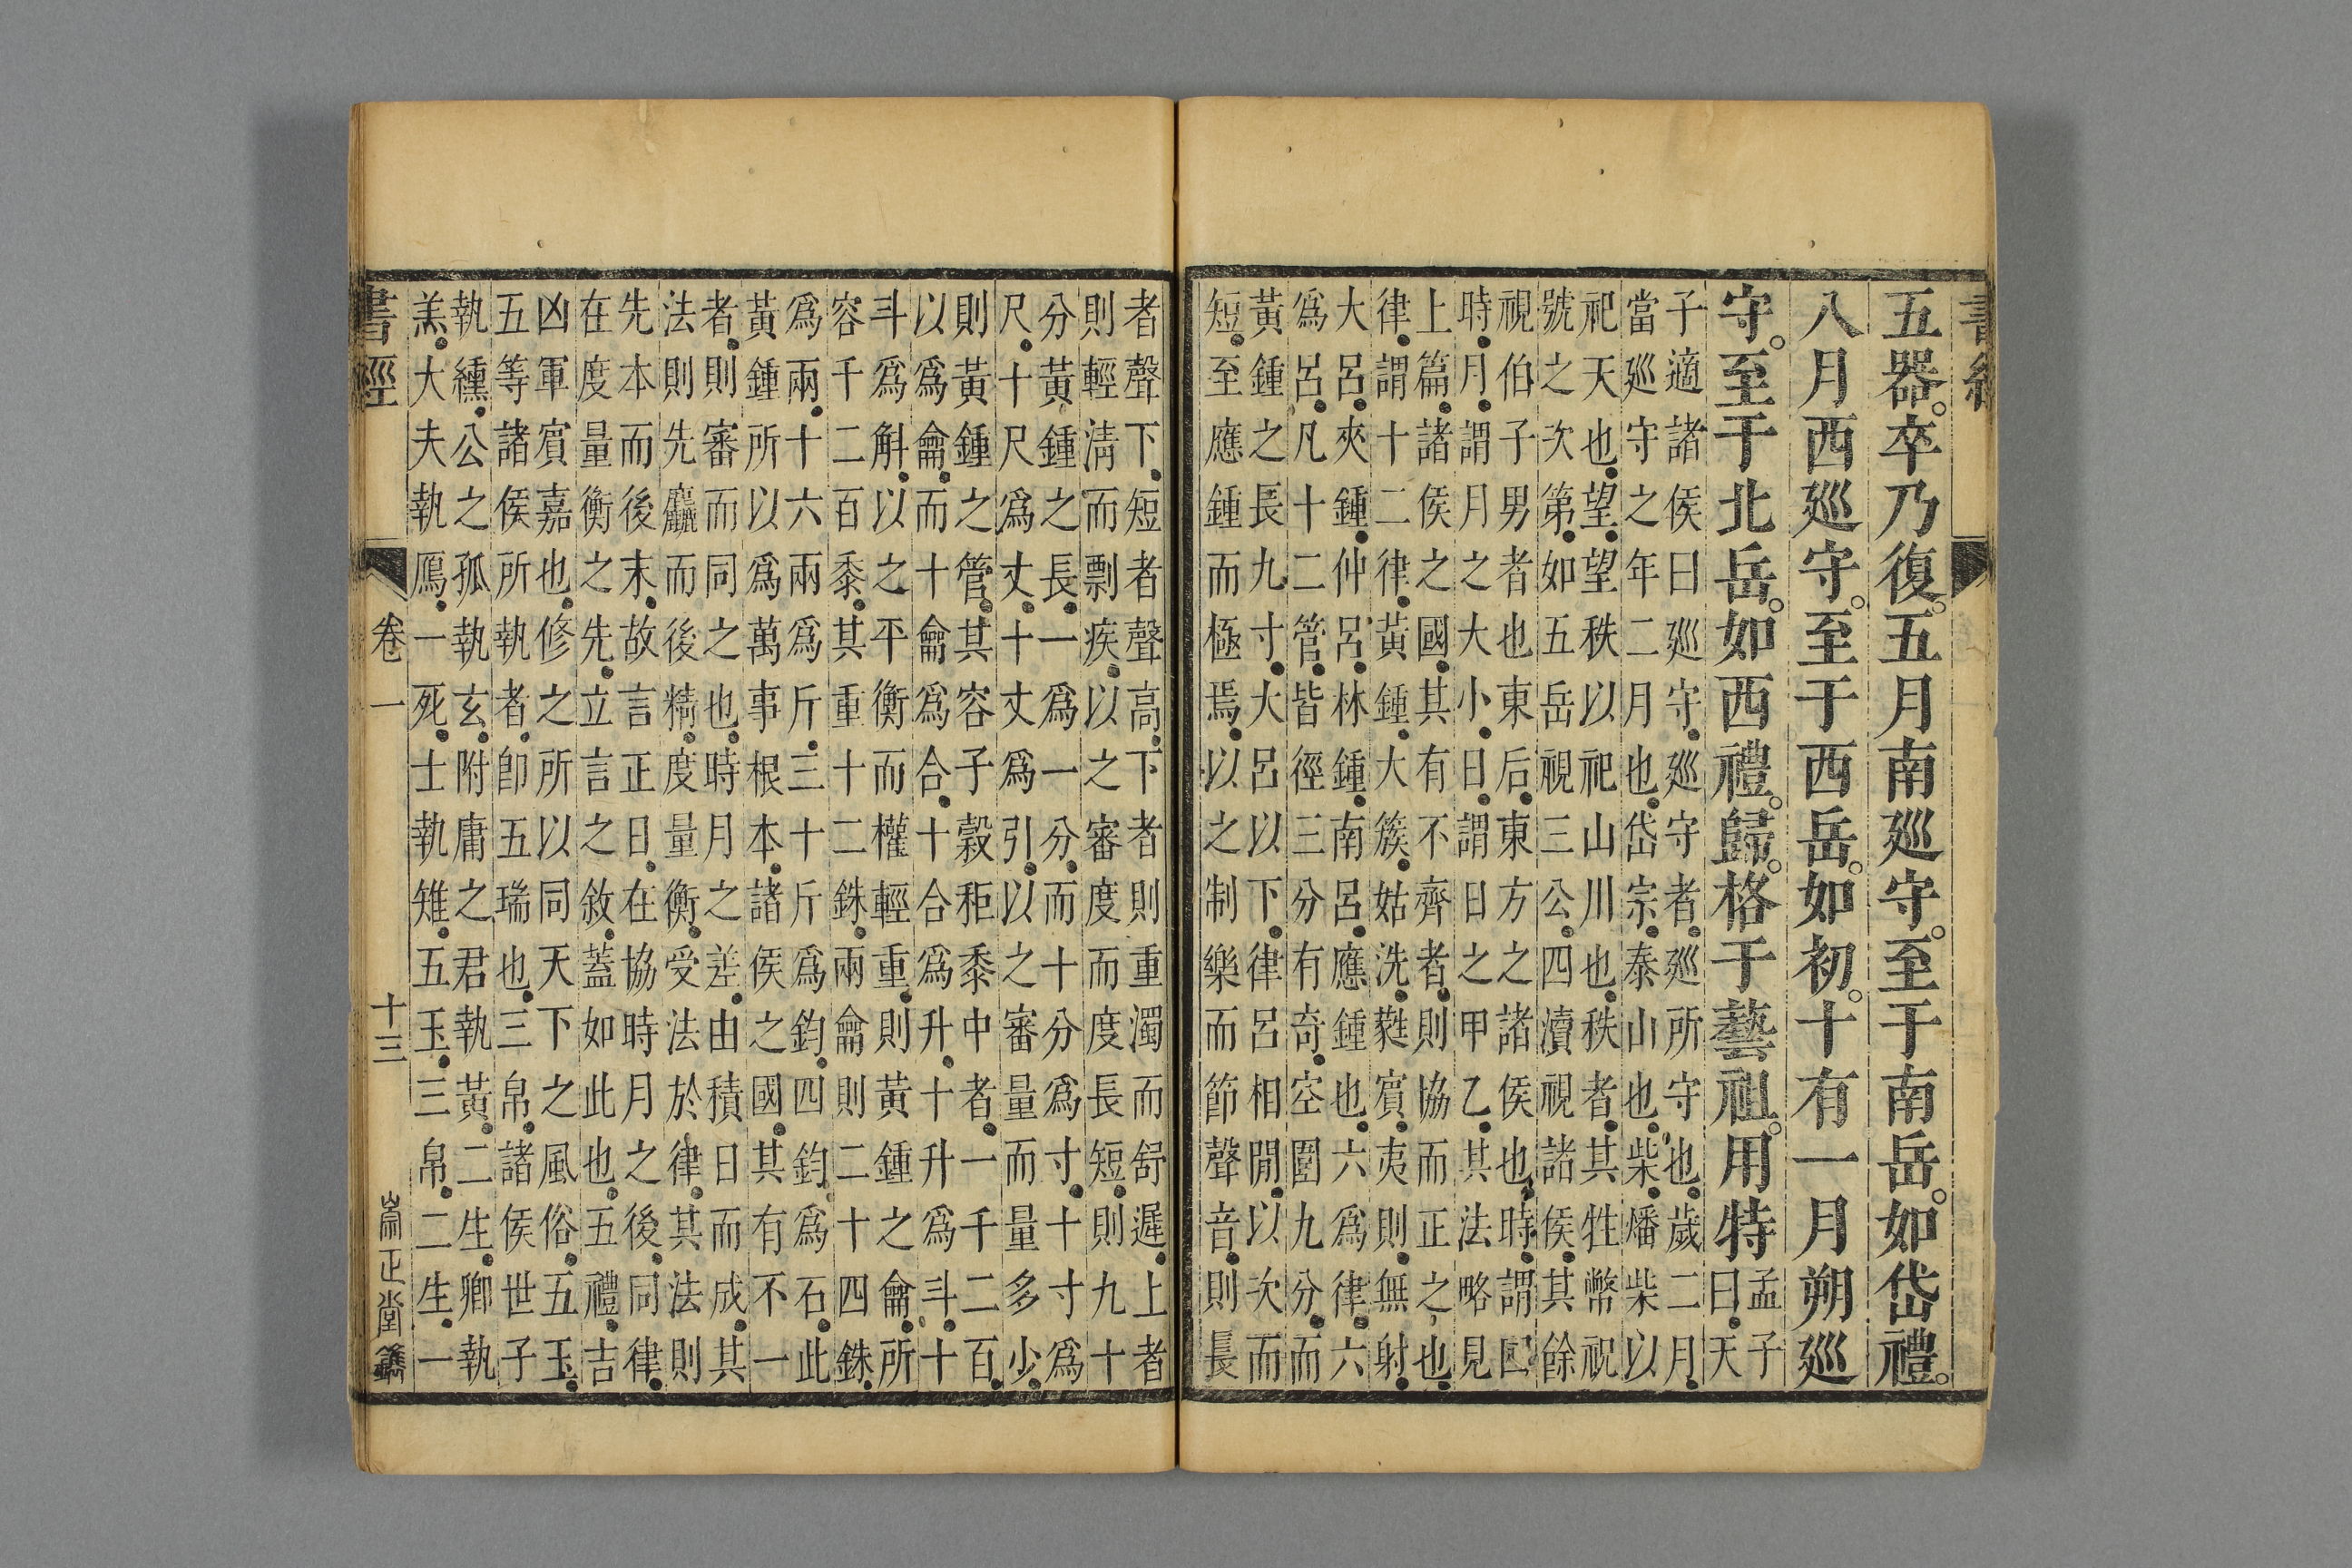 書經
五器。卒乃復。五月南廵守。至于南岳。如岱禮。
八月西廵守。至于西岳。如初。十有一月朔廵
守。至于北岳。如西禮。歸。格于藝祖。用特
孟子
曰、天
子適諸侯曰廵守、廵守者、廵所守也、歲二月、
當廵守之年二月也、岱宗、泰山也、柴、燔柴以
祀天也、望、望秩以祀山川也、秩者、其牲幣祝
號之次第、如五岳視三公、四瀆視諸侯、其餘
視伯子男者也、東后、東方之諸侯也、時、謂四
時、月、謂月之大小、日、謂日之甲乙、其法略見
上篇、諸侯之國、其有不齊者、則協而正之也、
律、謂十二律、黃鍾、大簇、姑洗、蕤賓、夷則、無射、
大呂、夾鍾、仲呂、林鍾、南呂、應鍾也、六爲律、六
爲呂、凡十二管、皆徑三分有奇、空圍九分、而
黃鍾之長九寸、大呂以下、律呂相閒、以次而
短、至應鍾而極焉、以之制樂而節聲音、則長
者聲下、短者聲高、下者則重濁而舒遲、上者
則輕淸而剽疾、以之審度而度長短、則九十
分黃鍾之長、一爲一分、而十分爲寸、十寸爲
尺、十尺爲丈、十丈爲引、以之審量而量多少、
則黃鍾之管、其容子穀秬黍中者、一千二百、
以爲龠、而十龠爲合、十合爲升、十升爲斗、十
斗爲斛、以之平衡而權輕重、則黃鍾之龠、所
容千二百黍、其重十二銖、兩龠則二十四銖、
爲兩、十六兩爲斤、三十斤爲鈞、四鈞爲石、此
黃鍾所以爲萬事根本、諸侯之國、其有不一
者、則審而同之也、時月之差、由積日而成、其
法則先麤而後精、度量衡、受法於律、其法則
先本而後末、故言正日、在協時月之後、同律、
在度量衡之先、立言之敘、蓋如此也、五禮、吉
凶軍賓嘉也、修之所以同天下之風俗、五玉、
五等諸侯所執者、卽五瑞也、三帛、諸侯世子
執纁、公之孤執玄、附庸之君執黃、二生、卿執
羔、大夫執鴈、一死、士執雉、五玉、三帛、二生、一
書經 卷一 十三 崇正堂鐫